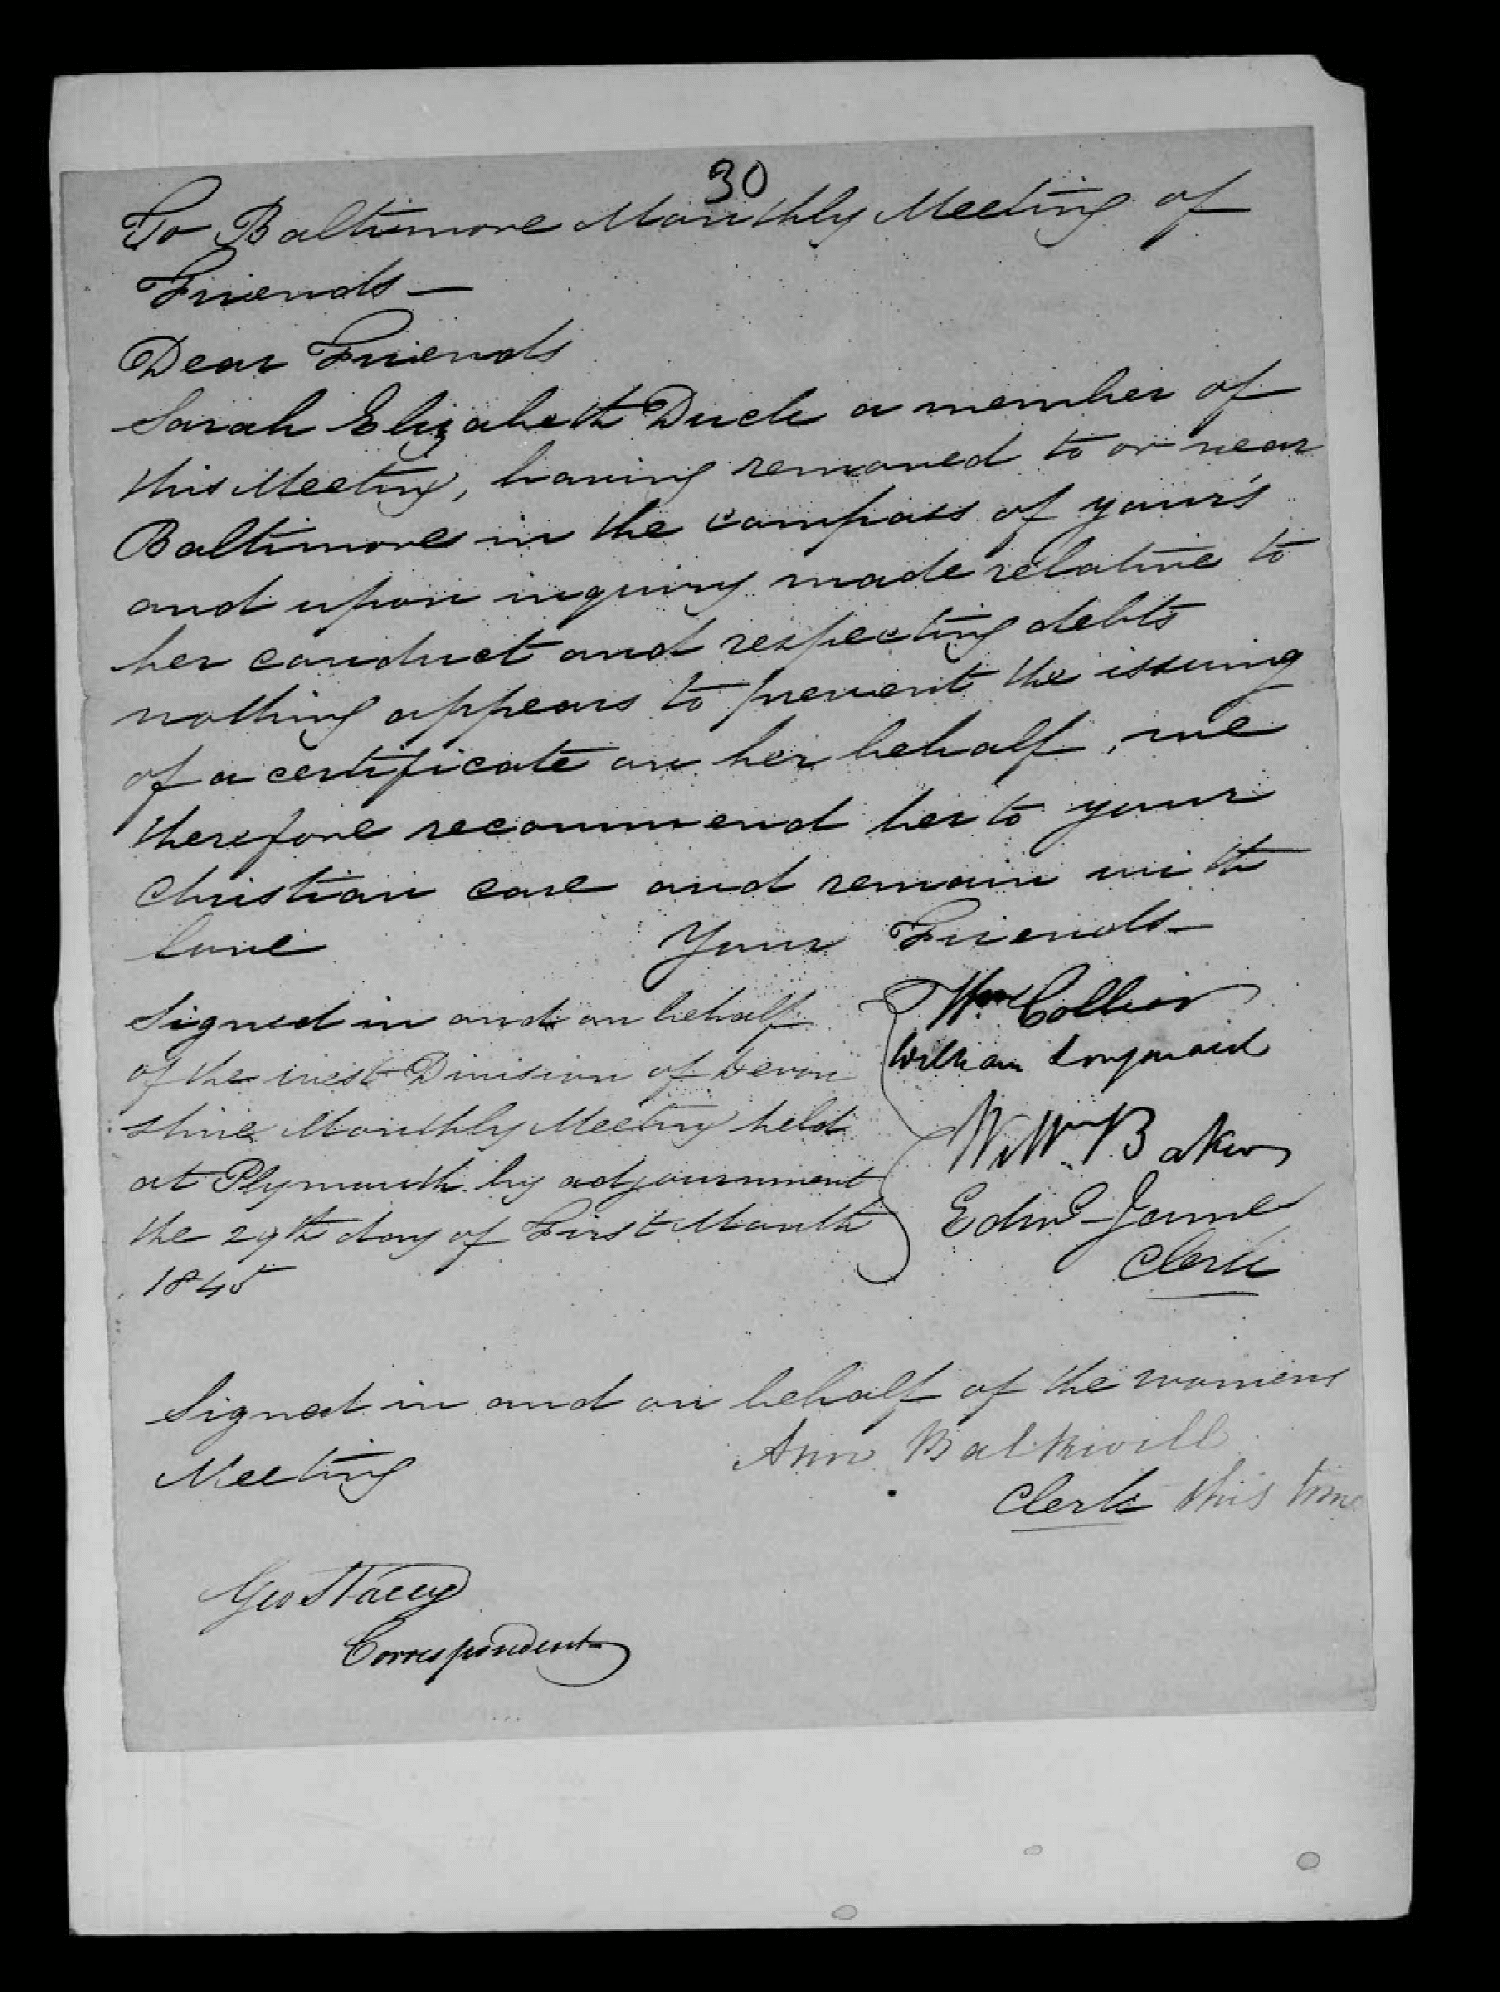 30
To Baltimore Monthly Meeting of
Friends —
Dear Friends
Sarah Elizabeth Duck a member of
this Meeting, having removed to or near
Baltimore in the compass of your's
and upon inquiry made relative to
her conduct and respecting debts
nothing appears to prevent the issuing
of a certificate on her behalf, we
therefore recommend her to your
Christian care and remain with
love Your Friends —
Signed in and on behalf
of the west Division of Devon
shire Monthly Meeting held
at Plymouth by adjournment
the 29th day of First Month
1845
Wm Collier
William Longmaid
Willm Baker
Edwd
Clerk
Signed in and on behalf of the womens
Meeting Ann Balkwill
Clerk this time
Geo Stacey
Correspondent